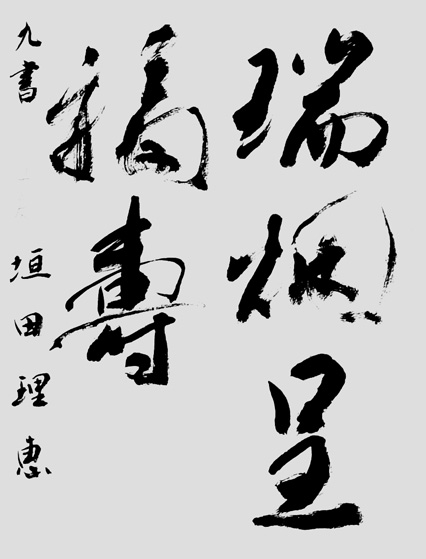 瑞烟呈
福壽
九書 垣田理恵